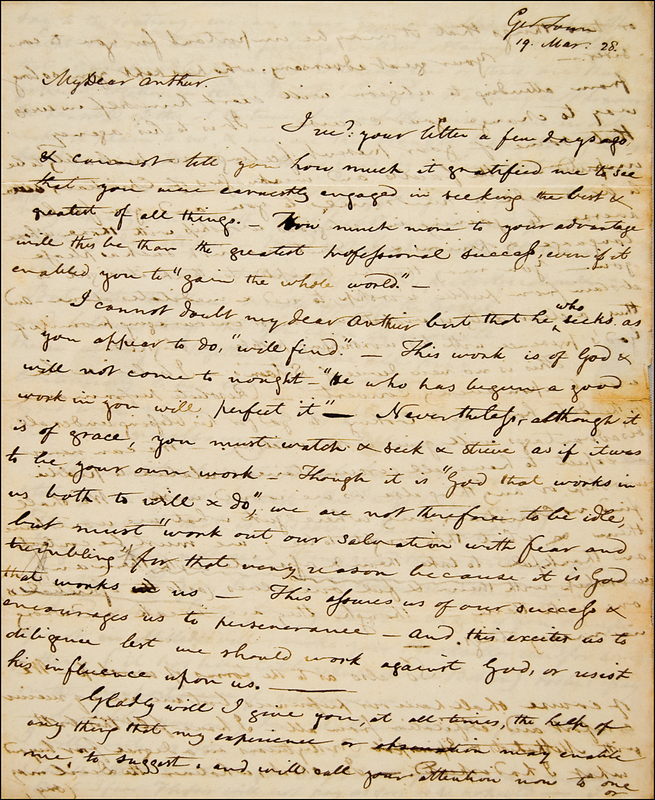 Geo Town
19. Mar. 28.
My Dear Arthur.
I recd. your letter a few days ago
& cannot tell you how much it gratified me to see
that you were earnestly engaged in seeking the best &
greatest of all things. — How much more to your advantage
will this be than the greatest professional success, even if it
enabled you to "gain the whole world." —
I cannot doubt my dear Arthur but that he who seeks as
you appear to do, "will find." — This work is of God &
will not come to nought — "He who has begun a good
work in you will perfect it" — Nevertheless, although it
is of grace, you must watch & seek & strive as if it was
to be your own work — Though it is "God that works in
us both to will & do", we are not therefore to be idle,
but must "work out our salvation with fear and
trembling" for that very reason because it is God
that works in us — This assures us of our success &
encourages us to perseverance — and this excites us to
diligence lest we should work against God, or resist
his influence upon us. —
Gladly will I give you, at all times, the help of
any thing that my experience or observation may enable
me, to suggest, and will call your attention now to one
or